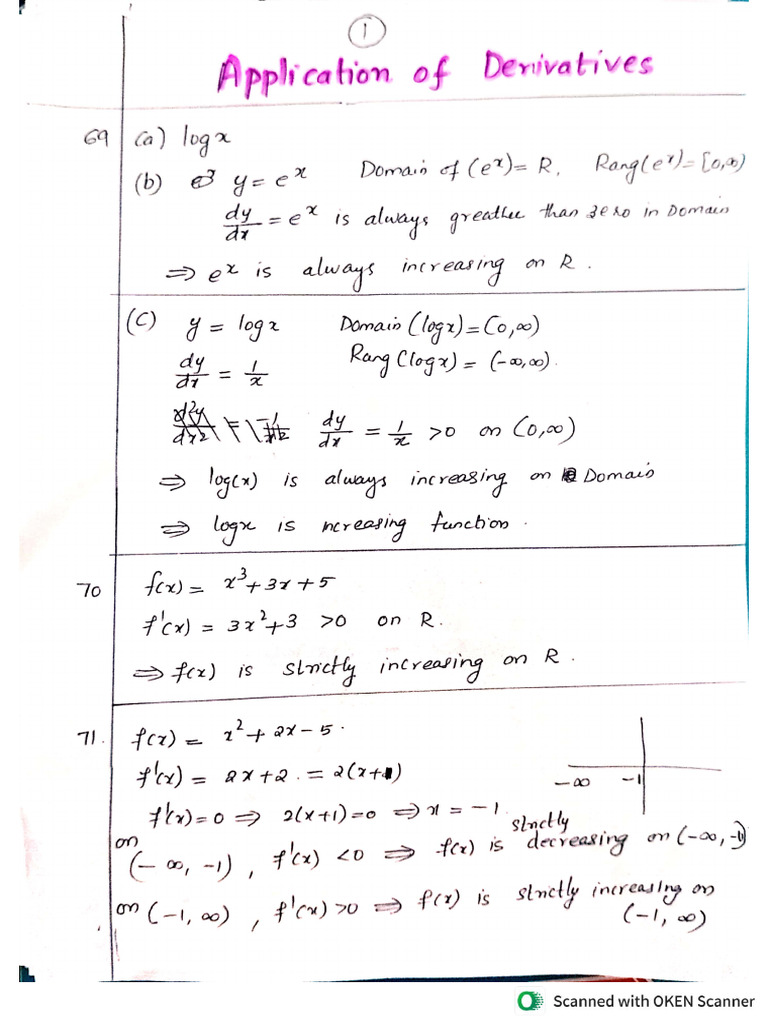 1
Application of Derivatives
69 (a) log x
(b) y = e^x Domain of (e^x) = R, Rang(e^x) = [0,∞)
dy/dx = e^x is always greather than zero in Domain
⇒ e^x is always increasing on R.
(C) y = log x Domain (log x) = (0,∞)
dy/dx = 1/x Rang (log x) = (-∞,∞).
dy/dx = 1/x >0 on (0,∞)
⇒ log(x) is always increasing on Domain
⇒ logx is ncreasing function.
70 f(x) = x^3+3x+5
f'(x) = 3x^2+3 >0 on R.
⇒ f(x) is strictly increasing on R.
71. f(x) = x^2+2x-5.
f'(x) = 2x+2. = 2(x+1)
-∞ -1
f'(x)=0 ⇒ 2(x+1)=0 ⇒ x = -1.
on (-∞, -1), f'(x) <0 ⇒ f(x) is strictly decreasing on (-∞, -1)
on (-1, ∞), f'(x) >0 ⇒ f(x) is strictly increasing on
(-1, ∞)
Scanned with OKEN Scanner